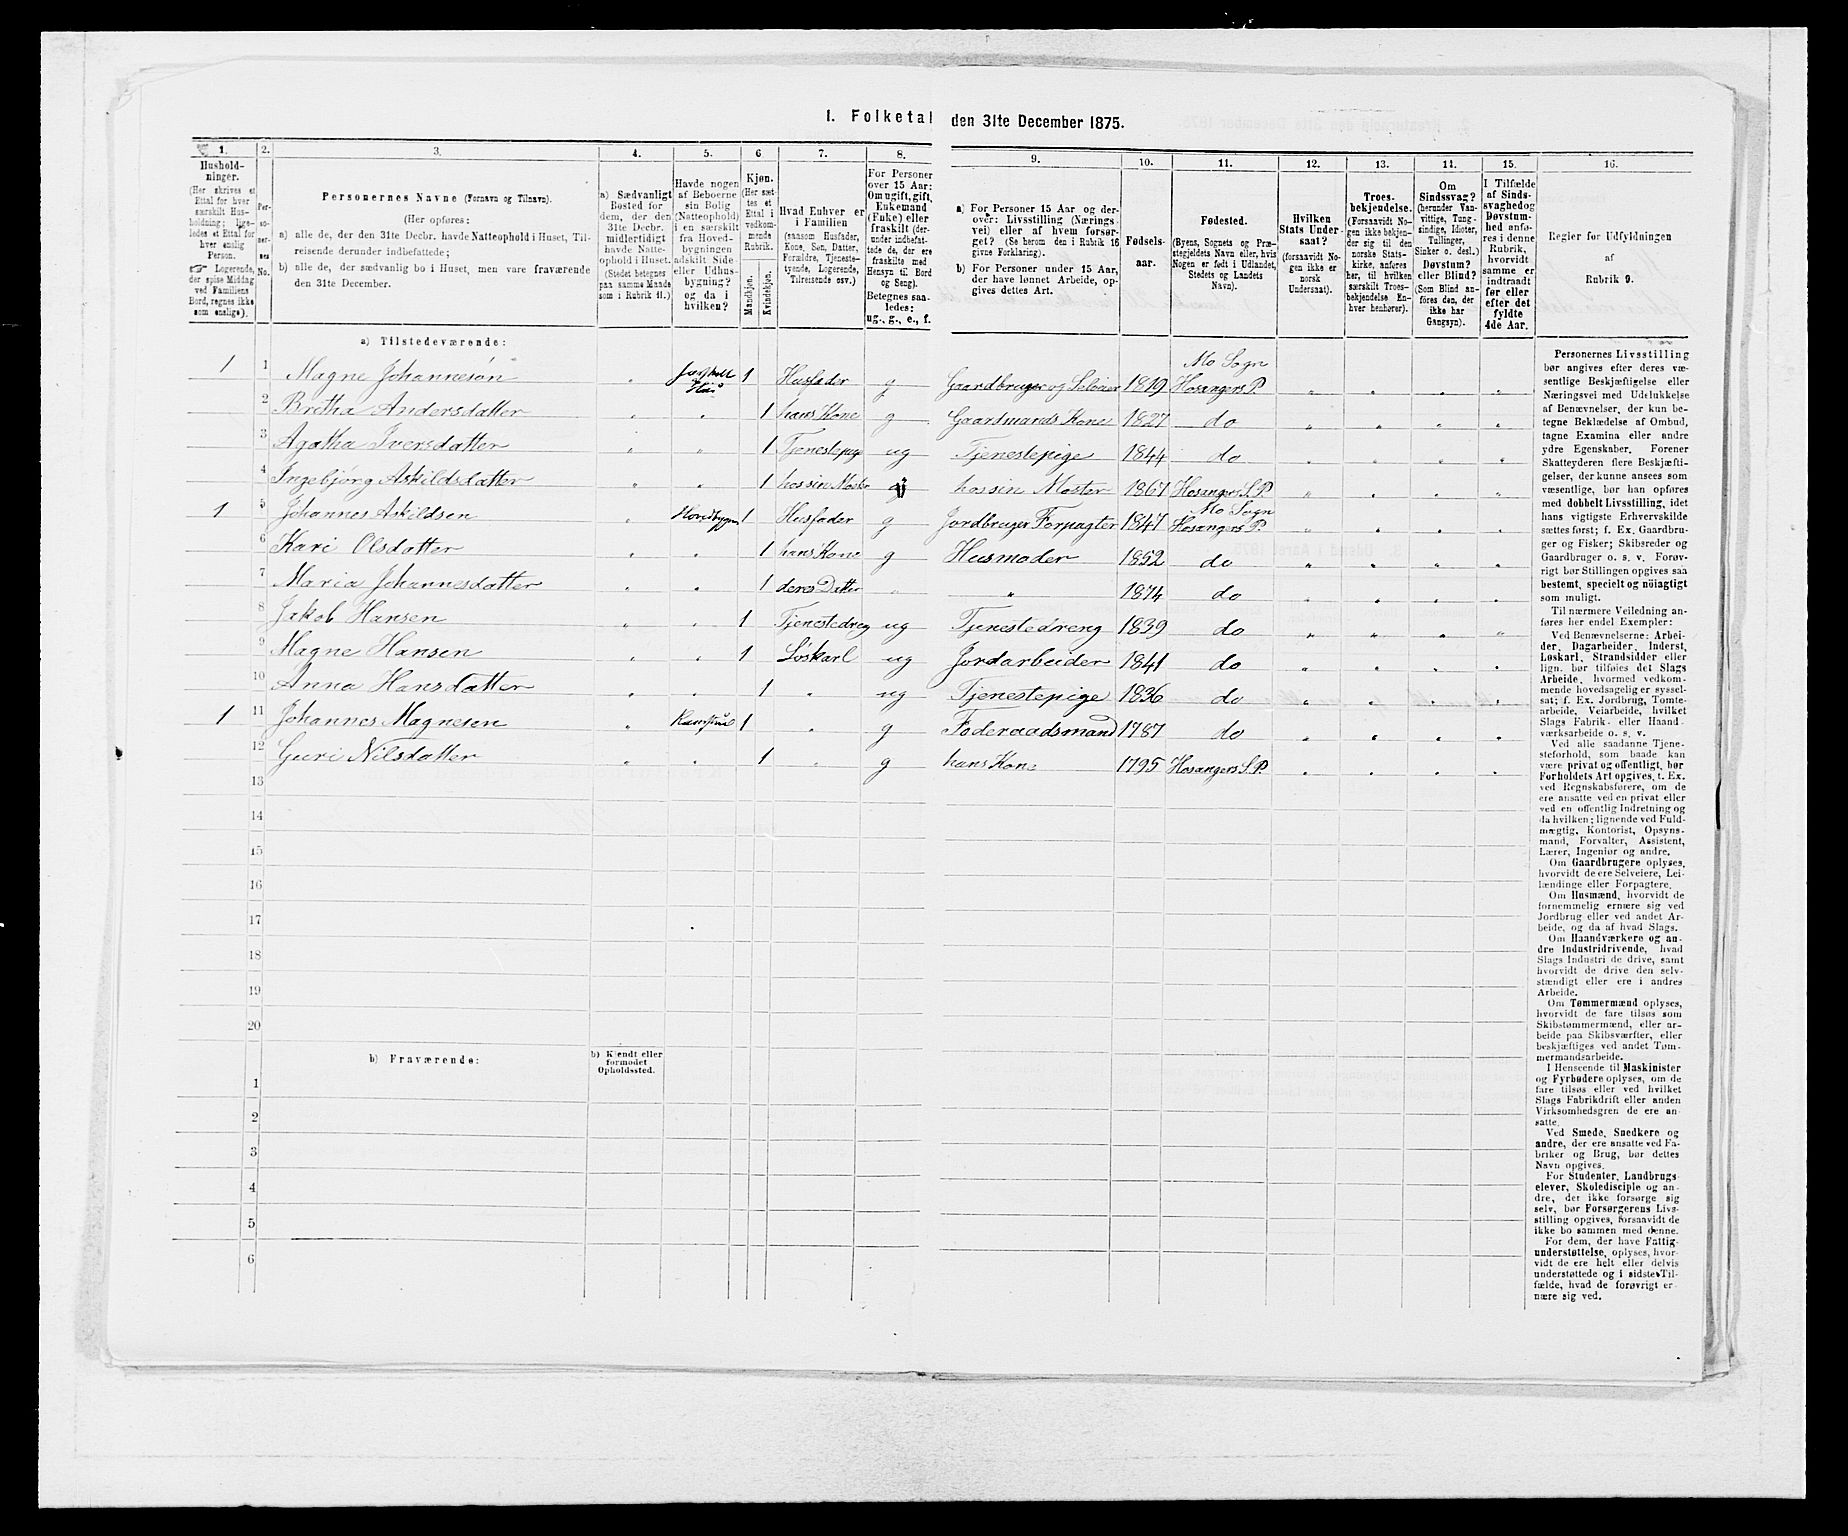 I. Folketal den 31te December 1875.
1.
Hushold-
ninger.
(Her skrives et
Ettal for hver
særskilt Hus-
holdning; lige-
ledes et Ettal for
hver enslig
Person.
☞ Logerende,
der spise Middag
ved Familiens
Bord, regnes ikke
som enslige).
2.
Per-
so-
ner-
nes
No.
3.
Personernes Navne (Fornavn og Tilnavn).
(Her opføres:
a) alle de, der den 31te Decbr. havde Natteophold i Huset, Til-
reisende derunder indbefattede;
b) alle de, der sædvanlig bo i Huset, men vare fraværende
den 31te December.
4.
a) Sædvanligt
Bosted for
dem, der den
31te Decbr.
midlertidigt
havde Natte-
ophold i Huset.
(Stedet betegnes
paa samme Maade
som i Rubrik 11.)
5.
Havde nogen
af Beboerne
sin Bolig
(Natteophold)
i en særskilt
fra Hoved-
bygningen
adskilt Side-
eller Udhus-
bygning?
og da i
hvilken?
6
Kjøn.
(Her sæt-
tes et
Ettal i
vedkom-
mende
Rubrik.
Mandkjøn.
Kvindekjøn.
7.
Hvad Enhver er
i Familien
(saasom Husfader,
Kone, Søn, Datter,
Forældre, Tjeneste-
tyende, Logerende,
Tilreisende osv.)
8.
For Personer
over 15 Aar:
Om ugift, gift,
Enkemand
(Enke) eller
fraskilt (der-
under indbefat-
tede de, der ere
fraskilte med
Hensyn til Bord
og Seng).
Betegnes saa-
ledes:
ug., g., e., f.
9.
a) For Personer 15 Aar og der-
over: Livsstilling (Nærings-
vei) eller af hvem forsør-
get? (Se herom den i Rubrik 16
givne Forklaring).
b) For Personer under 15 Aar,
der have lønnet Arbeide, op-
gives dettes Art.
10.
Fødsels-
aar.
11.
Fødested.
(Byens, Sognets og Præ-
stegjeldets Navn eller, hvis
Nogen er født i Udlandet,
Stedets og Landets
Navn).
12.
Hvilken
Stats Under-
saat?
(forsaavidt No-
gen ikke er
norsk
Undersaat).
13.
Troes-
bekjendelse.
(Forsaavidt No-
gen ikke bekjen-
der sig til den
norske Stats-
kirke, anføres
her, til hvilken
særskilt Troes-
bekjendelse En-
hver henhører).
14.
Om
Sindssvag?
(herunder Van-
vittige, Tung-
sindige, Idioter,
Tullinger,
Sinker o. desl.)
Døvstum?
eller Blind?
(Som Blind an-
føres den, der
ikke har
Gangsyn).
15.
I Tilfælde
af Sinds-
svaghed og
Døvstum-
hed anfø-
res i denne
Rubrik,
hvorvidt
samme er
indtraadt
før eller
efter det
fyldte
4de Aar.
16.
Regler for Udfyldningen
af
Rubrik 9.
a) Tilstedeværende:
1 1 Magne Johannesøn " 1 Husfader g Gaardbruger og Seleier 1819 Mo Sogn Hosangers P. " " " "
2 Bretha Andersdatter " " 1 hans Kone g Gaardmands Kone 1827 do " " " "
3 Agatha Iversdatter " " 1 Tjenestepige ug Tjenestepige 1844 do " " " "
4 Ingebjørg Askildsdatter " " 1 hos sin Moster hos sin Moster 1867 Hosangers S. P. " " " "
1 5 Johannes Askildsen " Hovedbygn 1 Husfader g Jordbruger Forpagter 1847 Mo Sogn Hosangers P. " " " "
6 Kari Olsdatter " " 1 hans Kone g Husmoder 1852 do " " " "
7 Maria Johannesdatter " " 1 deres Datter " " 1874 do " " " "
8 Jakob Hansen " " 1 Tjenestedreg ug Tjenestedreng 1839 do " " " "
9 Magne Hansen " " 1 Løskarl ug Jordarbeider 1841 do " " " "
10 Anna Hansdatter " " 1 " ug Tjenestepige 1836 do " " " "
1 11 Johannes Magnesen " 1 " g Føderaadsmand 1787 do " " " "
12 Guri Nilsdatter " " 1 " g hans Kone 1795 Hosangers S. P. " " " "
13
14
15
16
17
18
19
20
b) Fraværende:
b) Kjendt eller
formodet
Opholdssted.
1
2
3
4
5
6
Personernes Livsstilling
bør angives efter deres væ-
sentlige Beskjæftigelse eller
Næringsvei med Udelukkelse
af Benævnelser, der kun be-
tegne Beklædelse af Ombud,
tagne Examina eller andre
ydre Egenskaber. Forener
Skatteyderen flere Beskjæfti-
gelser, der kunne ansees som
væsentlige, bør han opføres
med dobbelt Livsstilling, idet
hans vigtigste Erhvervskilde
sættes først; f. Ex. Gaardbru-
ger og Fisker; Skibsreder og
Gaardbruger o. s. v. Forøv-
rigt bør Stillingen opgives saa
bestemt, specielt og nöiagtigt
som muligt.
Til nærmere Veiledning an-
føres her endel Exempler:
Ved Benævnelserne: Arbei-
der, Dagarbeider, Inderst,
Løskarl, Strandsidder eller
lign. bør tilføies det Slags
Arbeide, hvormed vedkom-
mende hovedsagelig er syssel-
sat; f. Ex. Jordbrug, Tomte-
arbeide, Veiarbeide, hvilket
Slags Fabrik- eller Haand-
værksarbeide o. s. v.
Ved alle saadanne Tjene-
steforhold, som baade kan
være privat og offentligt, bør
Forholdets Art opgives, t. Ex.
ved Regnskabsførere, om de
ere ansatte ved en privat eller
ved en offentlig Indretning og
da hvilken; lignende ved Fuld-
mægtig, Kontorist, Opsyns-
mand, Forvalter, Assistent,
Lærer, Ingeniør og andre.
Om Gaardbrugere oplyses,
hvorvidt de ere Selveiere, Lei-
lændinge eller Forpagtere.
Om Husmænd, hvorvidt de
fornemmelig ernære sig ved
Jordbrug eller ved andet Ar-
beide, og da af hvad Slags.
Om Haandværkere og an-
dre Industridrivende, hvad
Slags Industri de drive, samt
hvorvidt de drive den selv-
stændigt eller ere i andres
Arbeide.
Om Tømmermænd oplyses,
hvorvidt de fare tilsøs som
Skibstømmermænd, eller ar-
beide paa Skibsværfter, eller
beskjæftiges ved andet Tøm-
mermandsarbeide.
I Henseende til Maskinister
og Fyrbødere oplyses, om de
fare tilsøs eller ved hvilket
Slags Fabrikdrift eller anden
Virksomhedsgren de ere an-
satte.
Ved Smede, Snedkere og
andre, der ere ansatte ved Fa-
briker og Brug, bør dettes
Navn opgives.
For Studenter, Landbrugs-
elever, Skoledisciple og an-
dre, der ikke forsørge sig
selv, bør Forsørgerens Livs-
stilling opgives, forsaavidt de
ikke bo sammen med denne.
For dem, der have Fattig-
understøttelse, oplyses, hvor-
vidt de ere helt eller delvis
understøttede og i sidste Til-
fælde, hvad de forøvrigt er-
nære sig ved.